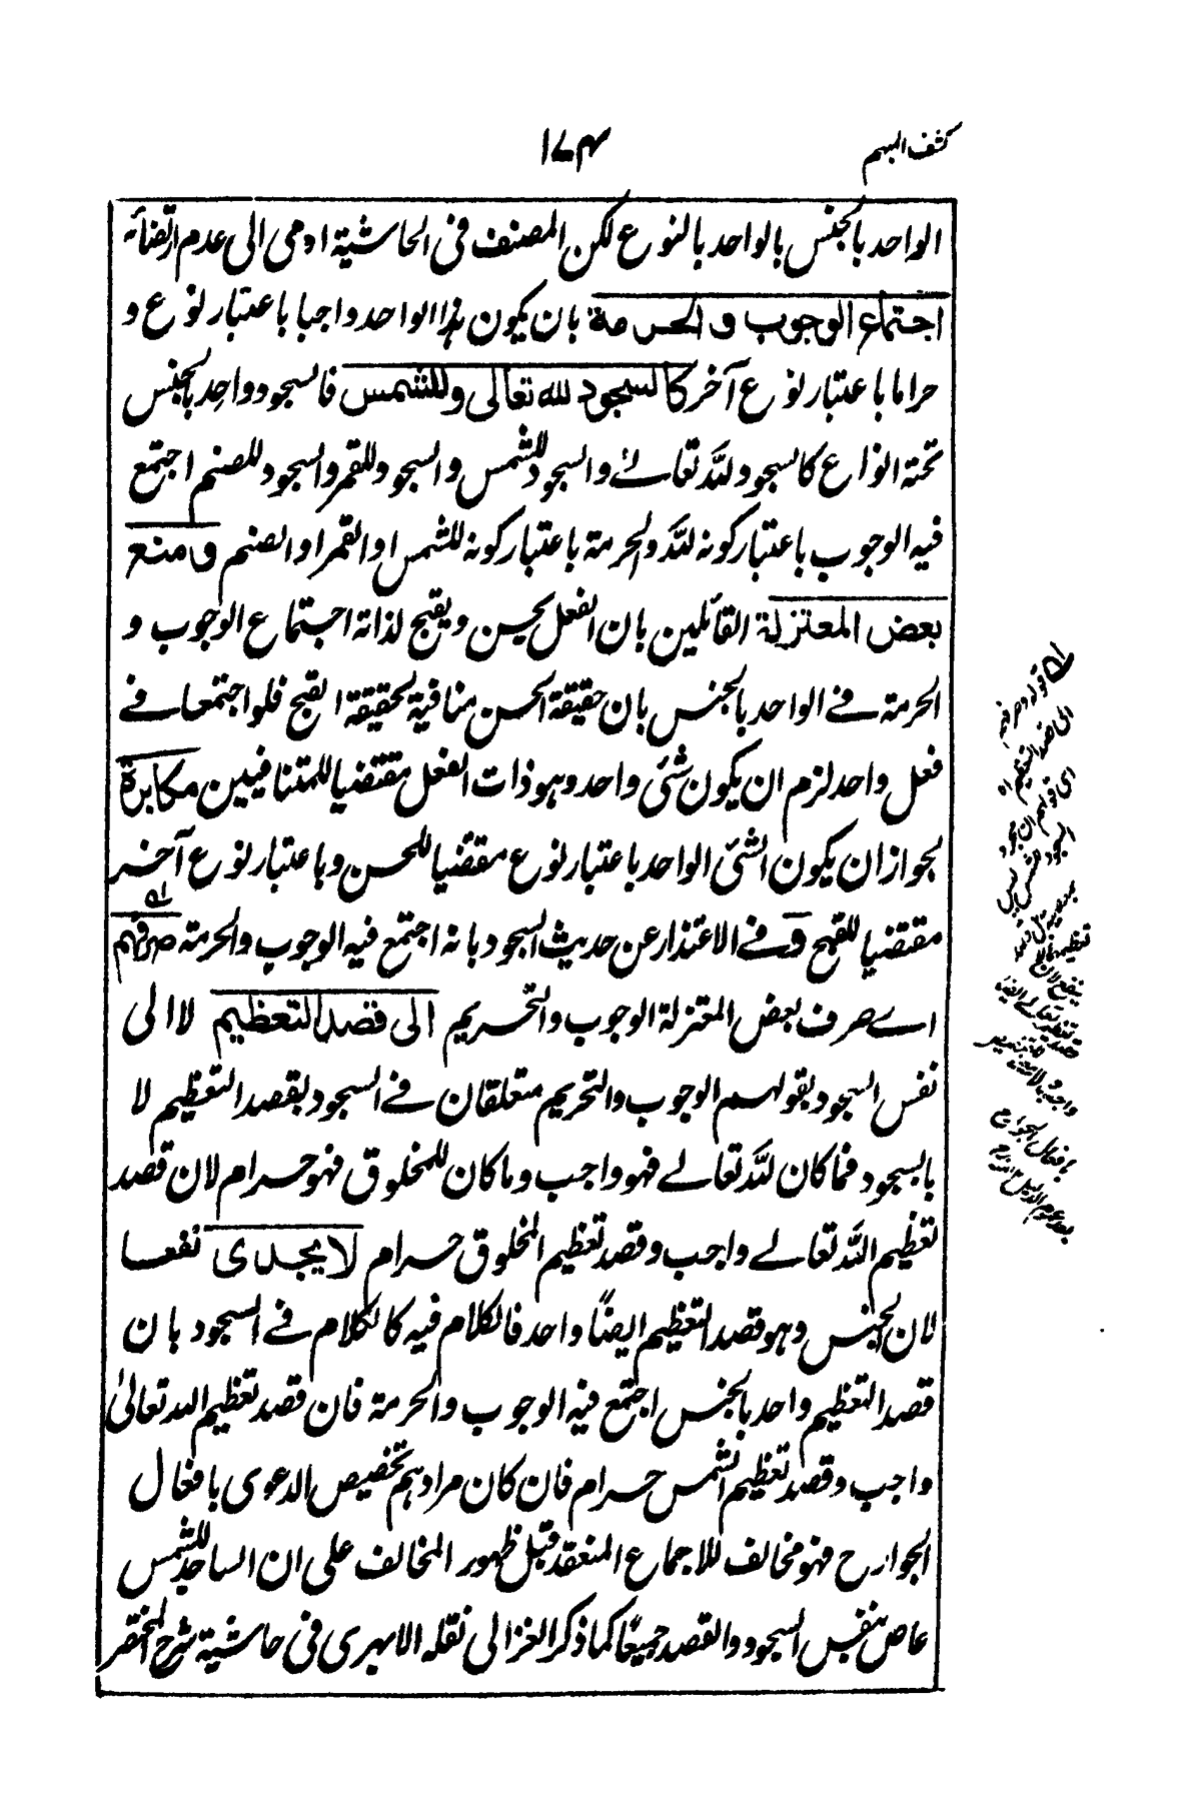 كشف المبهم
١٧٣
الواحد بالجنس بالواحد بالنوع لكن المصنف فى الحاشية اومى الى عدم ارتضائه
اجتماع الوجوب و الحرمة بان يكون هذا الواحد واجبا باعتبار نوع و
حراما باعتبار نوع آخر كالسجود لله تعالى وللشمس فالسجود واحد بالجنس
تحته انواع كالسجود لله تعالے والسجود للشمس والسجود للقمر والسجود للصنم اجتمع
فيه الوجوب باعتبار كونه لله والحرمة باعتبار كونه للشمس او القمر او الصنم و منع
بعض المعتزلة القائلين بان الفعل يحسن ويقبح لذاته اجتماع الوجوب و
الحرمة فے الواحد بالجنس بان حقيقة الحسن منافية لحقيقة القبح فلو اجتمعا فے
فعل واحد لزم ان يكون شئ واحد وهو ذات الفعل مقتضيا للمتنافيين مكابرة
لجواز ان يكون الشئ الواحد باعتبار نوع مقتضيا للحسن وباعتبار نوع آخر
مقتضيا للقبح و فے الاعتذار عن حديث السجود بانه اجتمع فيه الوجوب والحرمة صرفهم
اے صرف بعض المعتزلة الوجوب والتحريم الى قصد التعظيم لا الى
نفس السجود بقولهم الوجوب والتحريم متعلقان فے السجود بقصد التعظيم لا
بالسجود فما كان لله تعالے فهو واجب وما كان للمخلوق فهو حرام لان قصد
تعظيم الله تعالے واجب وقصد تعظيم المخلوق حرام لا يجدى نفعا
لان الجنس وهو قصد التعظيم ايضًا واحد فالكلام فيه كالكلام فے السجود بان
قصد التعظيم واحد بالجنس اجتمع فيه الوجوب والحرمة فان قصد تعظيم الله تعالىٰ
واجب وقصد تعظيم الشمس حرام فان كان مرادهم تخصيص الدعوى بافعال
الجوارح فهو مخالف للاجماع المنعقد قبل ظهور المخالف على ان الساجد للشمس
عاص بنفس السجود والقصد جميعًا كما ذكر الغزالى نقله الابهرى فى حاشية شرح المختصر
له قوله وصرفهم
الى قصد التعظيم اه
اى قولهم ان
السجود للشمس ليس
تعظيم
واجب
بافعال الجوارح
بعد عموم الدليل